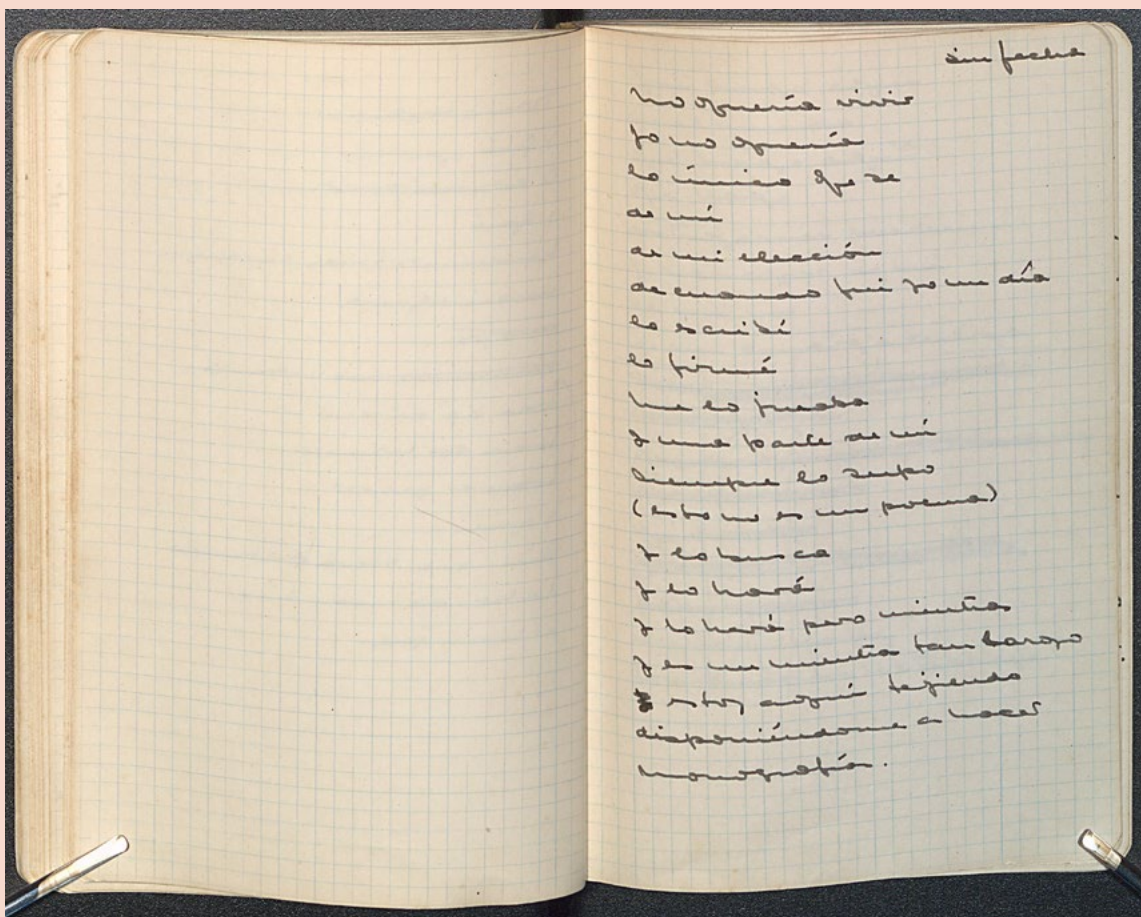 sin fecha
no quería vivir
yo no quería
lo único que se
de mí
de mi elección
de cuando fui yo un día
lo escribí
lo firmé
me lo
y una parte de mí
siempre lo supo
(esto no es un poema)
y lo busca
y lo hará
y lo hará pero mientras
y es un mientra tan largo
estoy aquí tejiendo
disponiéndome a hacer
monografía.